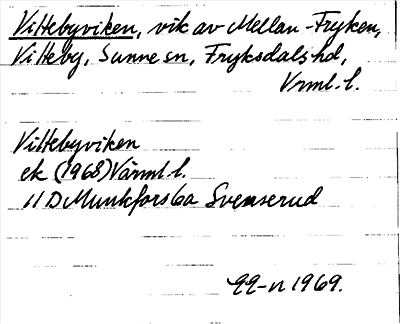 Vittebyviken, vik av Mellan-Fryken,
Vitteby, Sunne sn, Fryksdals hd,
Vrml. l.
Vittebyviken
ek (1968) Värml. l.
11 D Munkfors 6a Svenserud
1969.